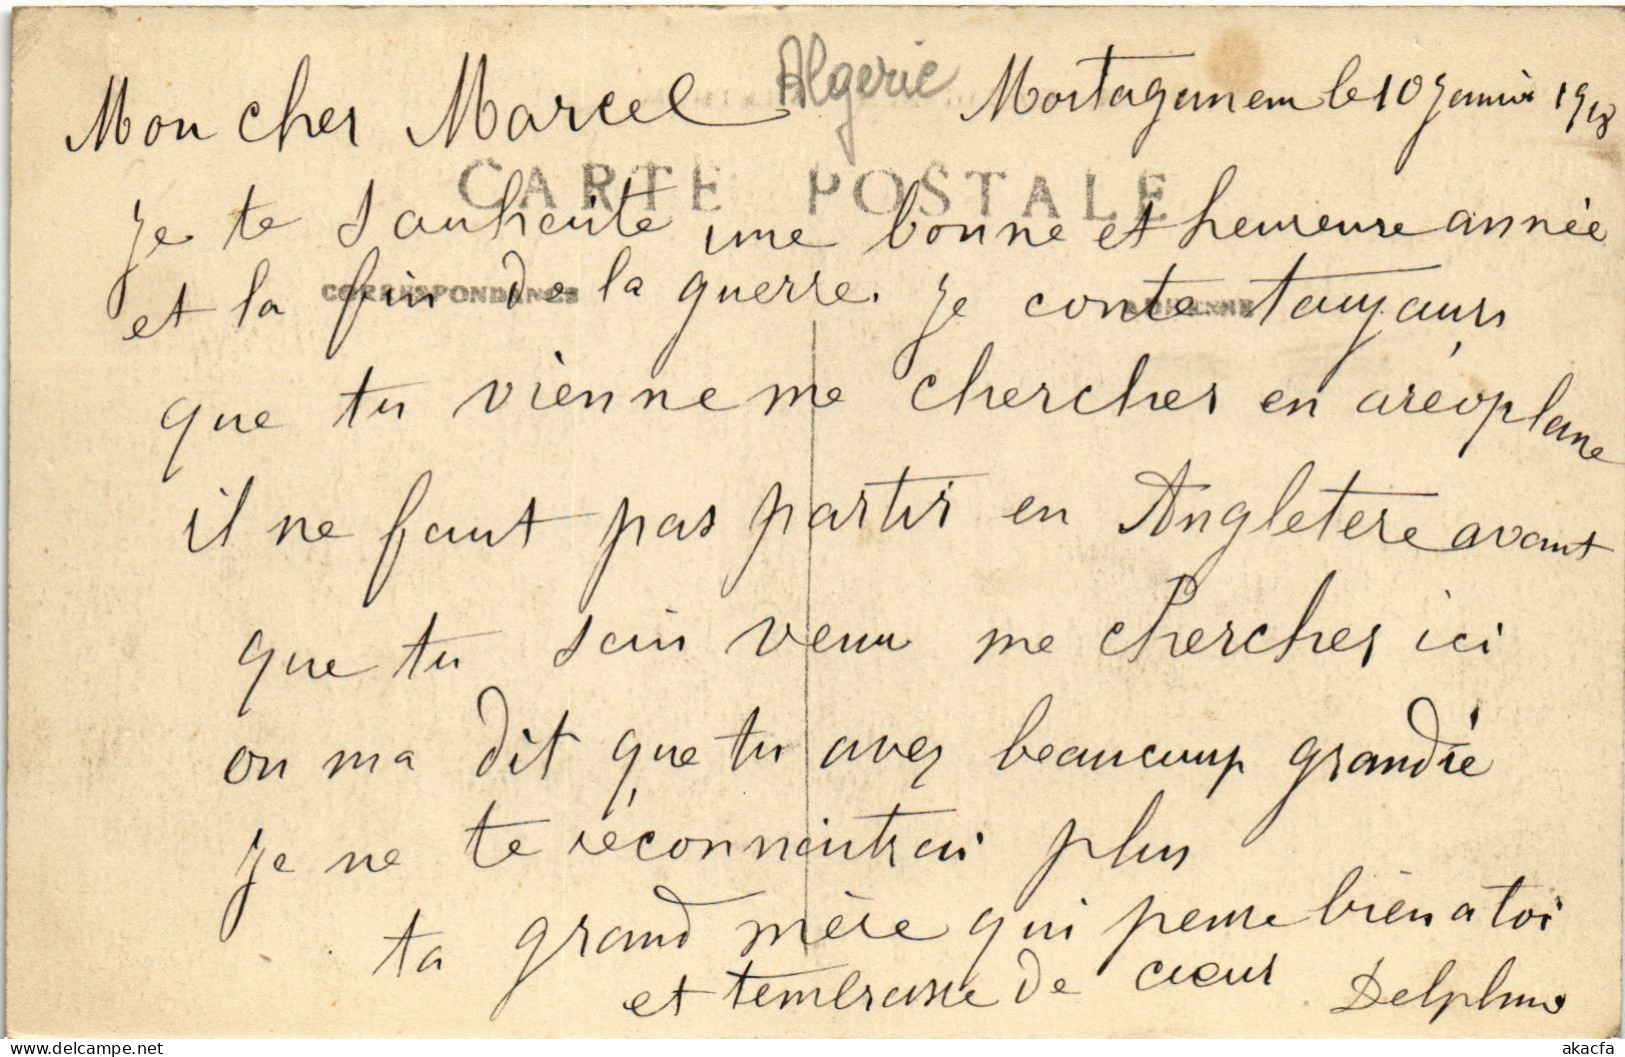 Algerie
Mon cher Marcel Mostaganem le 10 Janvier 1918
CARTE POSTALE
Je te souhaite une bonne et heureuse année
CORRESPONDANCE
et la fin de la guerre. Je conte toujours
que tu vienne me chercher en aréoplane
il ne faut pas partir en Angletere avant
que tu soin venu me chercher ici
on ma dit que tu avez beaucoup grandié
Je ne te réconnaitrai plus
ta grand mère qui pense bien a toi
et tembrasse de cœur Delphine
akacfa